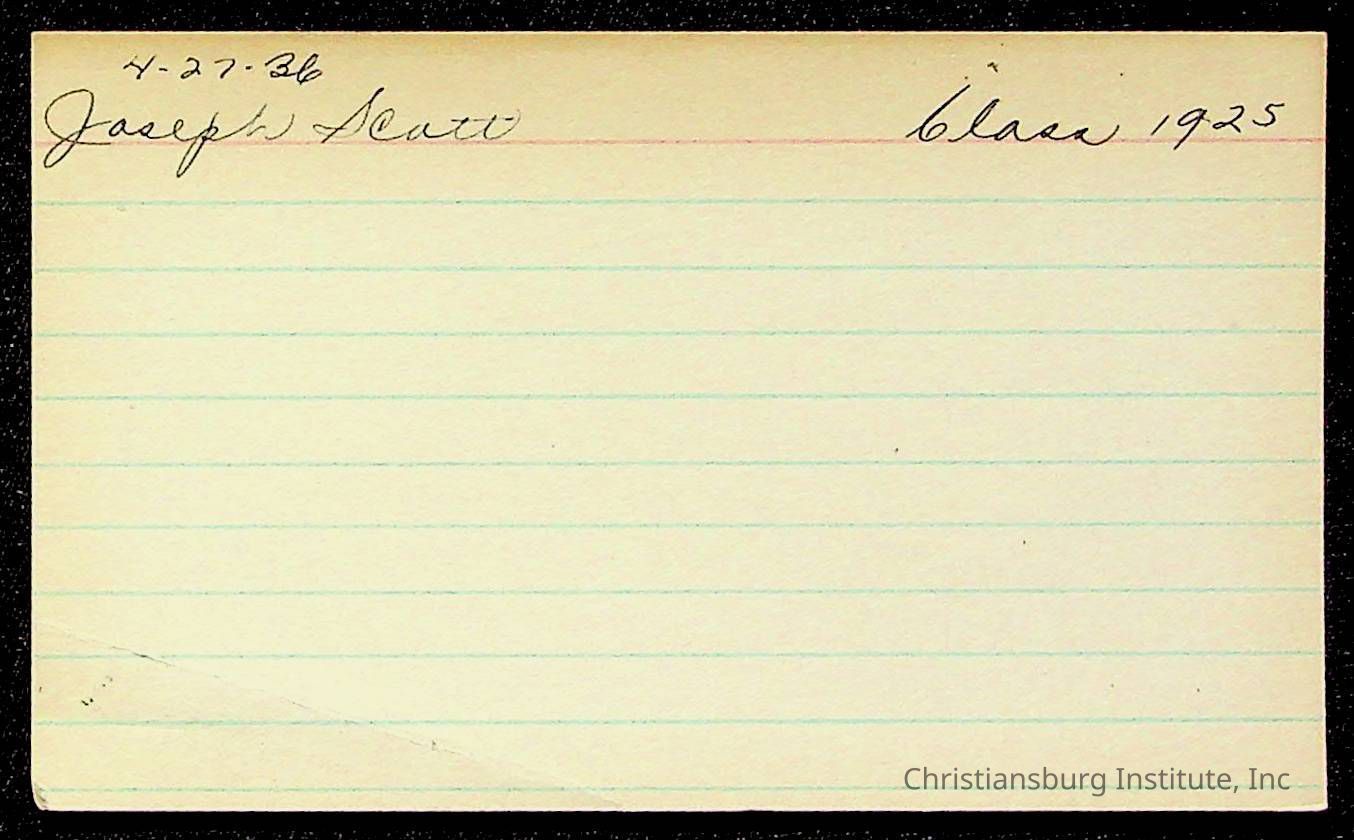 4-27-36
Joseph Scott Class 1925
Christiansburg Institute, Inc